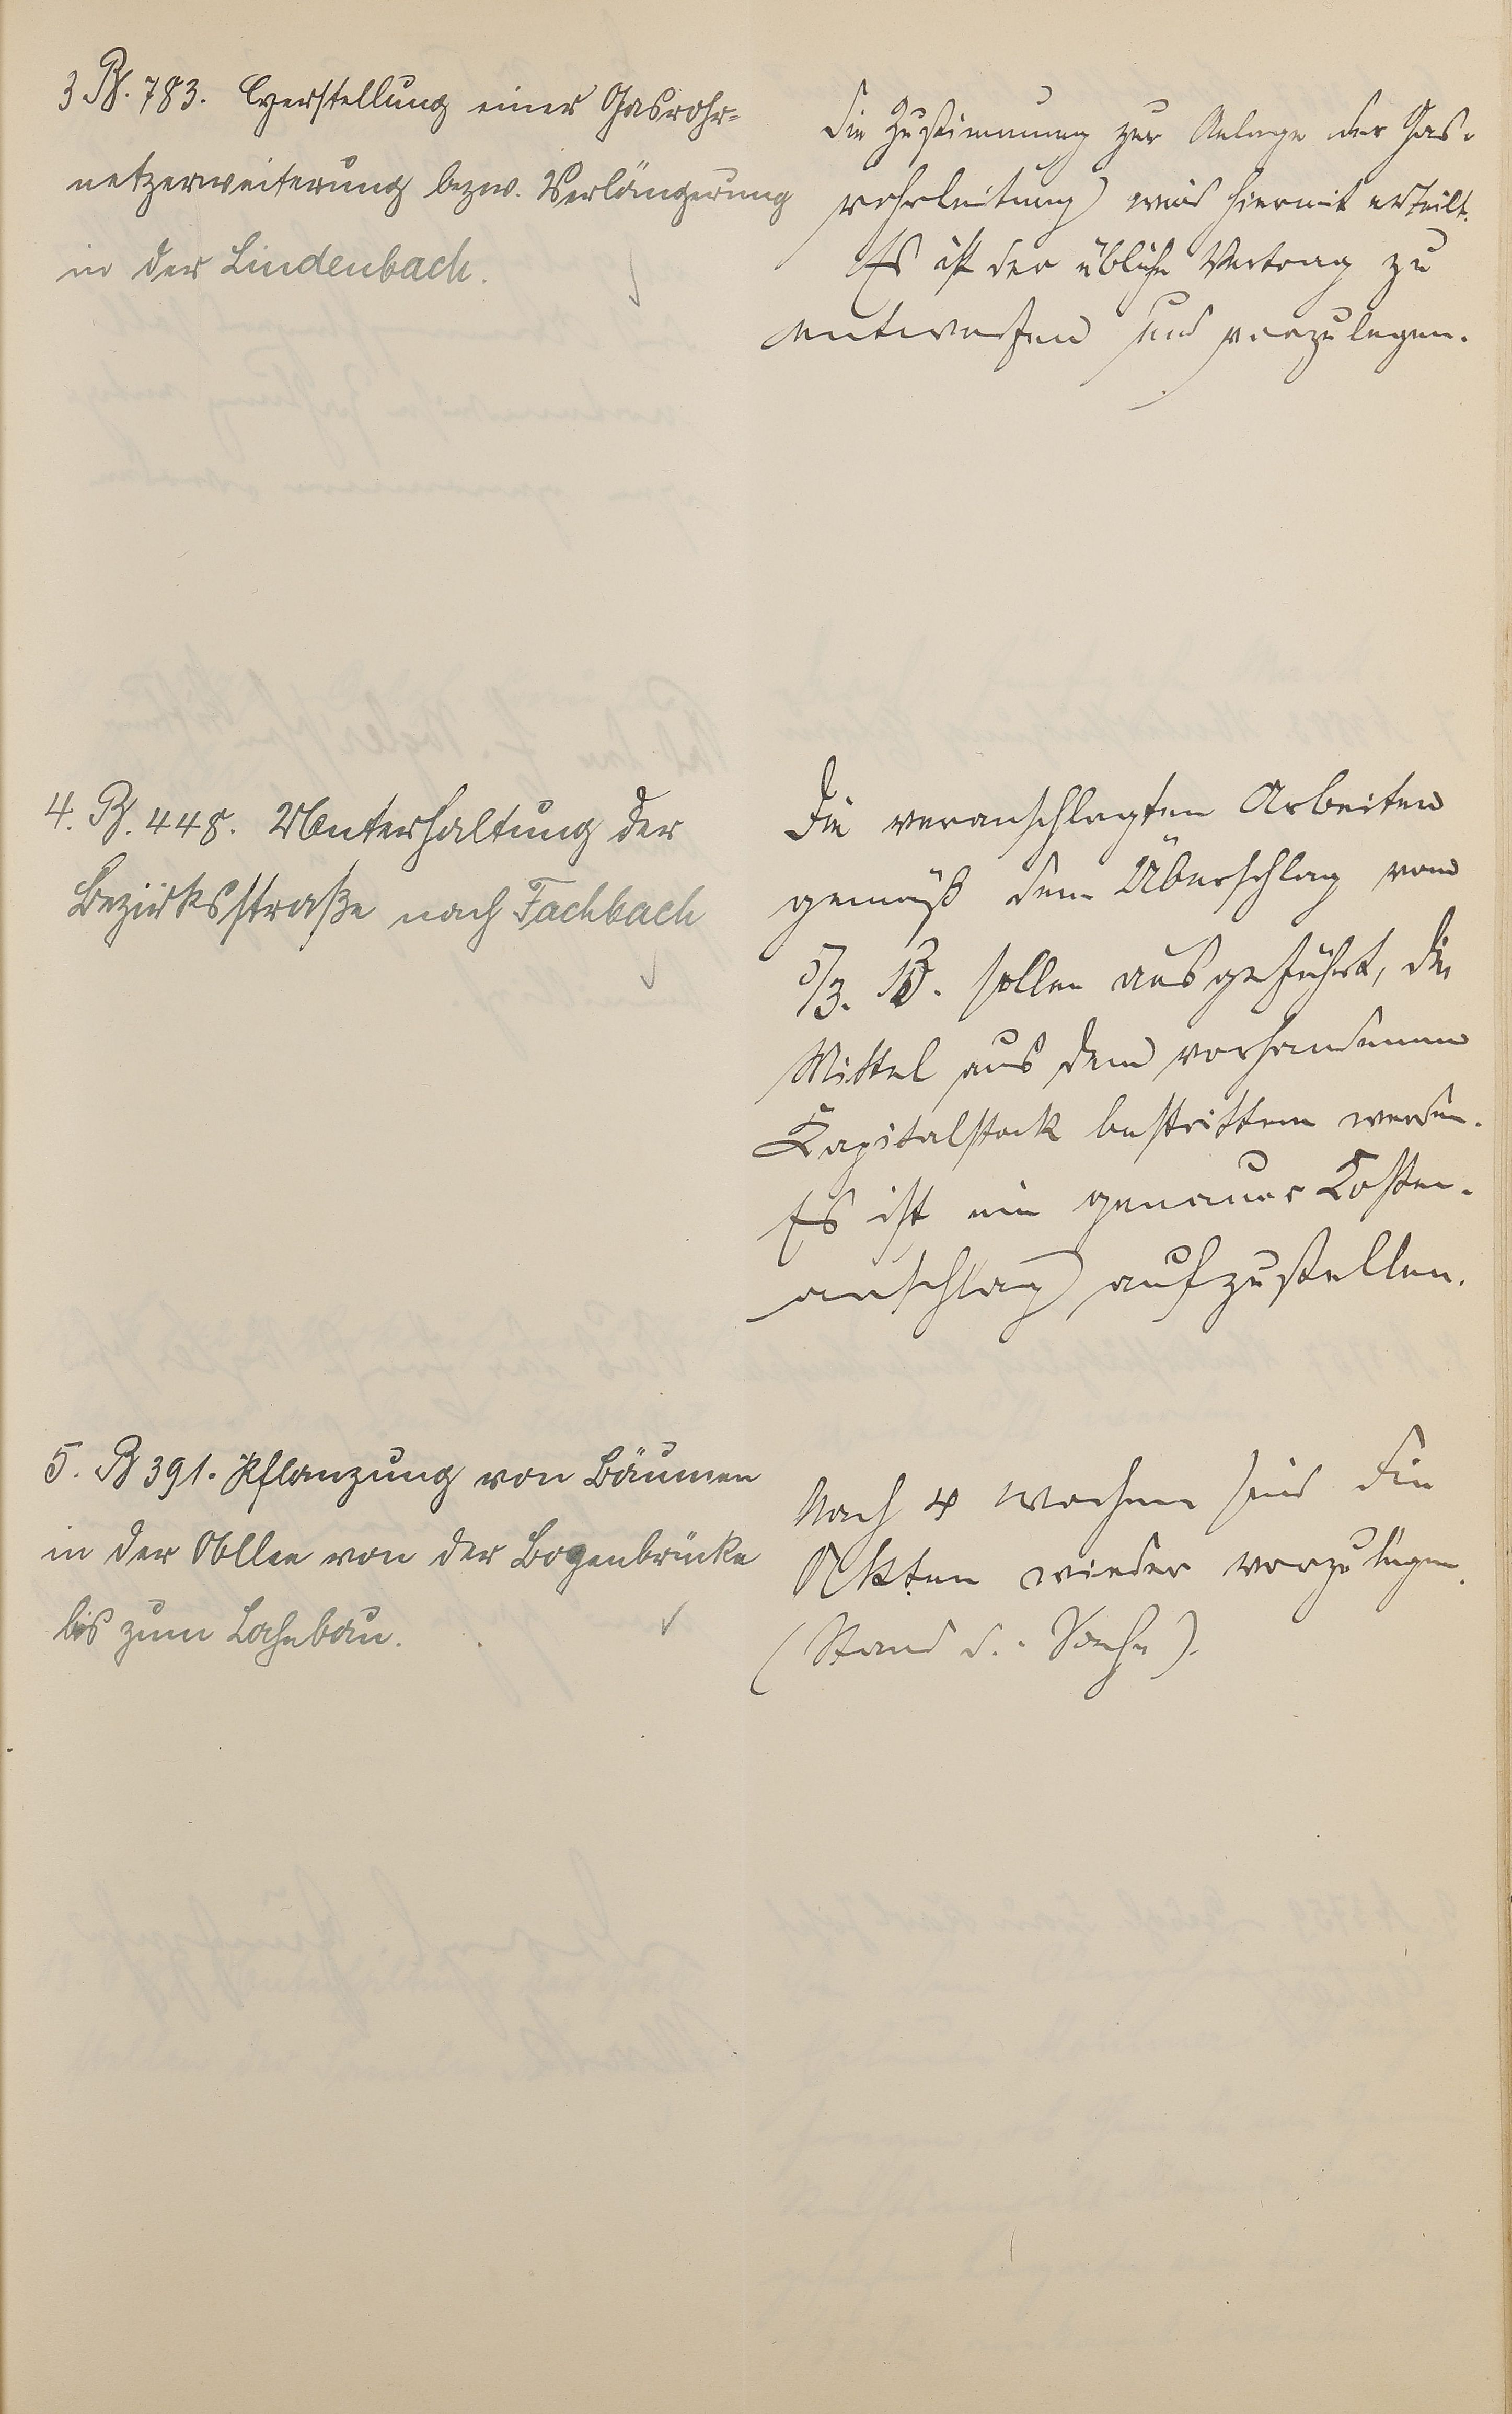 3 B. 783. Herstellung einer Gasrohr-
netzerweiterung bezw. Verlängerung
in der Lindenbach.
Die Zustimmung zur Anlage der Gas-
rohrleitung wird hiermit erteilt.
Es ist der übliche Vertrag zu
entwerfen und vorzulegen.
4. B. 448. Unterhaltung der
Bezirksstraße nach Fachbach
Die veranschlagten Arbeiten
gemäß dem Überschlag vom
5/3. 13. sollen ausgeführt, die
Mittel aus dem vorhandenen
Kapitalstock bestritten werden.
Es ist ein genauer Kosten-
anschlag aufzustellen.
5. B 391. Pflanzung von Bäumen
in der Allee von der Bogenbrücke
bis zum Lahnbau.
Nach 4 Wochen sind die
Akten wieder vorzulegen.
(Stand d. Sache).